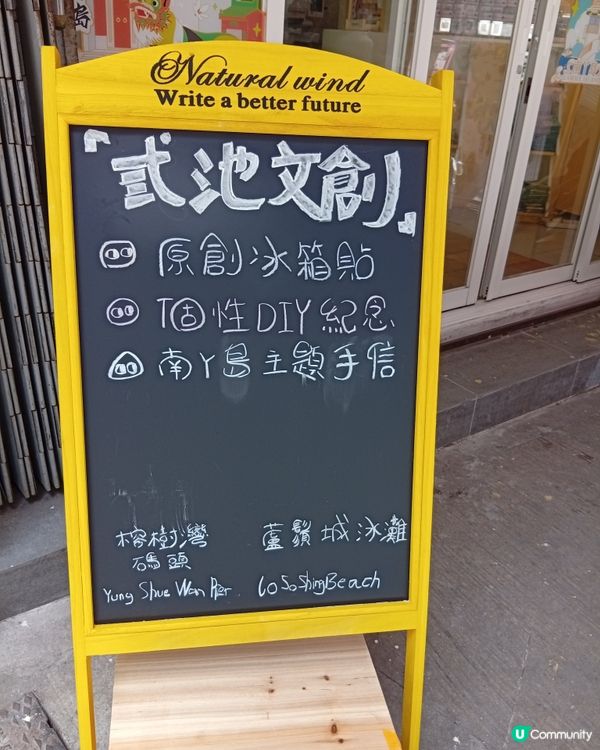 Natural wind
Write a better future
「弍池文創」
原創冰箱貼
個性DIY紀念
南丫島主題手信
榕樹灣
碼頭
Yung Shue Wan Pier
蘆鬚城泳灘
Lo So Shing Beach
島
U Community